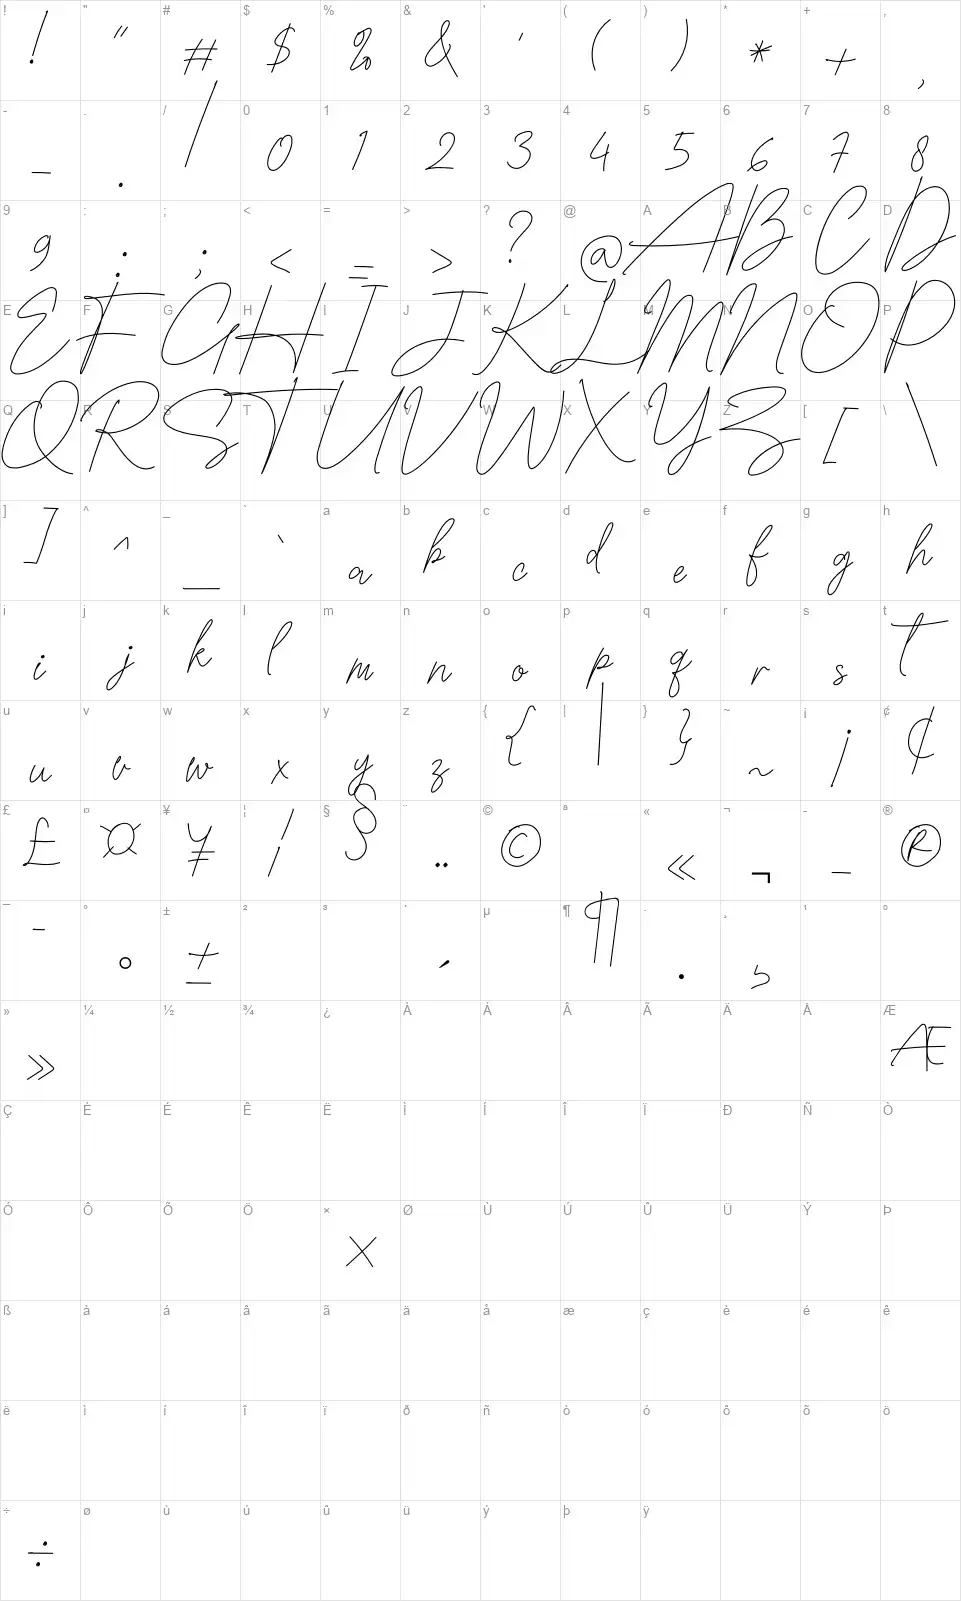 ! " # $ % & ' ( ) * + ,
! " # $ % & ' ( ) * + ,
- . / 0 1 2 3 4 5 6 7 8
- . / 0 1 2 3 4 5 6 7 8
9 : ; < = > ? @ A B C D
9 : ; < = > ? @ A B C D
E F G H I J K L M N O P
E F G H I J K L M N O P
Q R S T U V W X Y Z [ \
Q R S T U V W X Y Z [ \
] ^ _ ` a b c d e f g h
] ^ _ ` a b c d e f g h
i j k l m n o p q r s t
i j k l m n o p q r s t
u v w x y z { | } ~ ¡ ¢
u v w x y z { | } ~ ¡ ¢
£ ¤ ¥ ¦ § ¨ © ª « ¬ - ®
£ ¤ ¥ ¦ § ¨ © « ¬ - ®
¯ ° ± ² ³ ´ µ ¶ · ¸ ¹ º
¯ ° ± ´ ¶ · ¸
» ¼ ½ ¾ ¿ À Á Â Ã Ä Å Æ
» Æ
Ç È É Ê Ë Ì Í Î Ï Ð Ñ Ò
Ó Ô Õ Ö × Ø Ù Ú Û Ü Ý Þ
×
ß à á â ã ä å æ ç è é ê
ë ì í î ï ð ñ ò ó ô õ ö
÷ ø ù ú û ü ý þ ÿ
÷